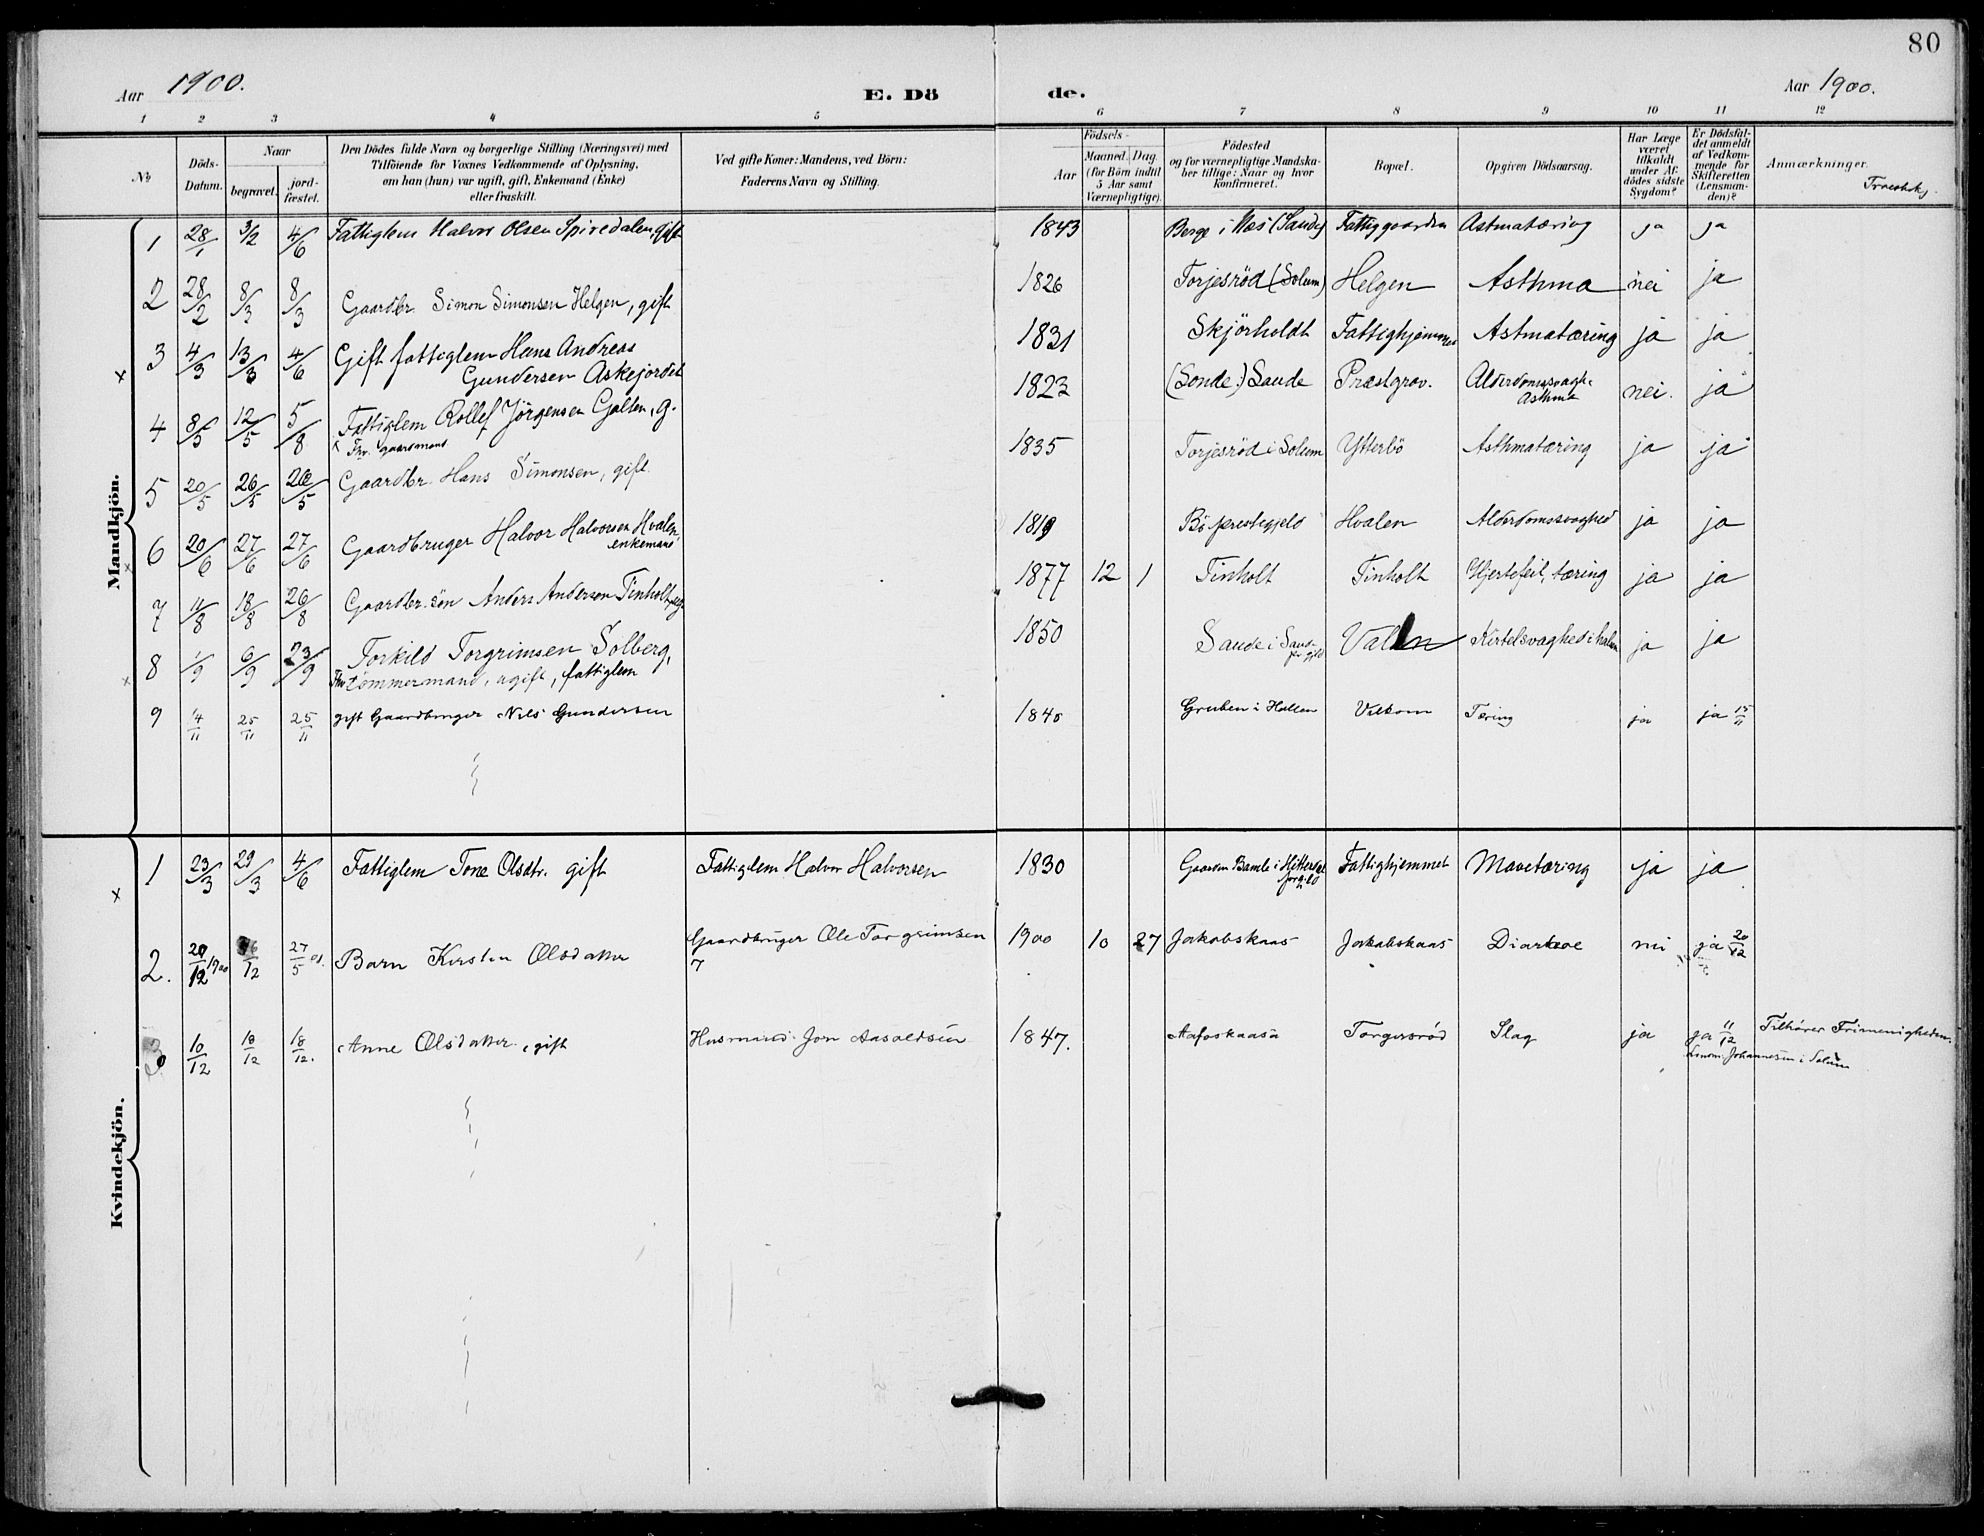 80
Aar 1900.
E. Dö
de.
Aar 1900.
1 2 3 4 5 6 7 8 9 10 11 12
No
Döds-Datum.
Naar
begravet.
jord-fæstet.
Den Dödes fulde Navn og borgerlige Stilling (Næringsvei) med
Tilföiende for Voxnes Vedkommende af Oplysning,
om han (hun) var ugift, gift, Enkemand (Enke)
eller fraskilt.
Ved gifte Koner: Mandens, ved Börn:
Faderens Navn og Stilling.
Födsels-
Aar
Maaned. Dag.
(for Börn indtil
5 Aar samt
Værnepligtige).
Födested
og for værnepligtige Mandska-
ber tillige: Naar og hvor
Konfirmeret.
Bopæl.
Opgiven Dödsaarsag.
Har Læge
været
tilkaldt
under Af-
dödes sidste
Sygdom?
Er Dödsfal-
det anmeldt
af Vedkom-
mende for
Skifteretten
(Lensman-
den)?
Anmærkninger.
Mandkjön.
1 28/1 3/2 4/6 Fattiglem Halvor Olsen Spiredalen gift 1843 Berge i Næs (Saude) Fattiggaarden Astmatæring ja ja
2 28/2 8/3 8/3 Gaardbr. Simon Simonsen Helgen, gift 1826 Torjesröd (Solum) Helgen Asthma nei ja
3 4/3 13/3 4/6 Gift fattiglem Hans Andreas 1831 Skjörholdt Fattighjemmet Astmatæring ja ja
Gundersen Askejordet
4 8/5 12/5 5/8 Fattiglem Rollef Jörgensen Galten, g. 1823 (Sonde:) Saude Præstgrav. Alderdomssvagh. nei. ja
Fhv. gaardmand
Asthma
5 20/5 26/5 26/5 Gaardbr. Hans Simonsen, gift. 1835 Torjesröd i Solum Ytterbö Asthmatæring ja ja
6 20/6 27/6 27/6 Gaardbruger Halvor Halvorsen Hvalen, 1819 Bö prestegjeld Hvalen Alderdomssvaghed ja ja
enkemand
7 11/8 18/8 26/8 Gaardbr. sön Anders Anderson Tinholt, ug. 1877 12 1 Tinholt Tinholt Hjertefeil, tæring ja ja
8 1/9 6/9 23/9 Torkild Torgrimsen Solberg, 1850 Saude i Saude pr.gjeld Valen Kirtelsvaghed i halsen ja ja
Fhv. tömmermand, ugift, fattiglem
9 4/11 25/11 25/11 gift Gaardbruger Nils Gundersen 1840 Gruben i Hollen Valkom Tæring ja ja 15/11
Kvindekjön.
1 23/3 29/3 4/6 Fattiglem Tone Olsdtr. gift Fattiglem Halvor Halvorsen 1830 Gaarden Bamle i Hitterdal Fattighjemmet Mavetæring ja ja
2. 20/12 1900 26/12 27/5 01. Barn Kirsten Olsdatter Gaardbruger Ole Torgrimsen 1900 10 27 Jakobskaas Jakobskaas Diarhoe nei ja 20/12
3 10/12 18/12 18/12. Anne Olsdatter, gift Husmand Jon Aasoldsen 1847. Aafoskaasa Torgersröd Slag ja ja 11/12 Tilhörer Frimenigheden.
Lensm. Johannesen i Solum